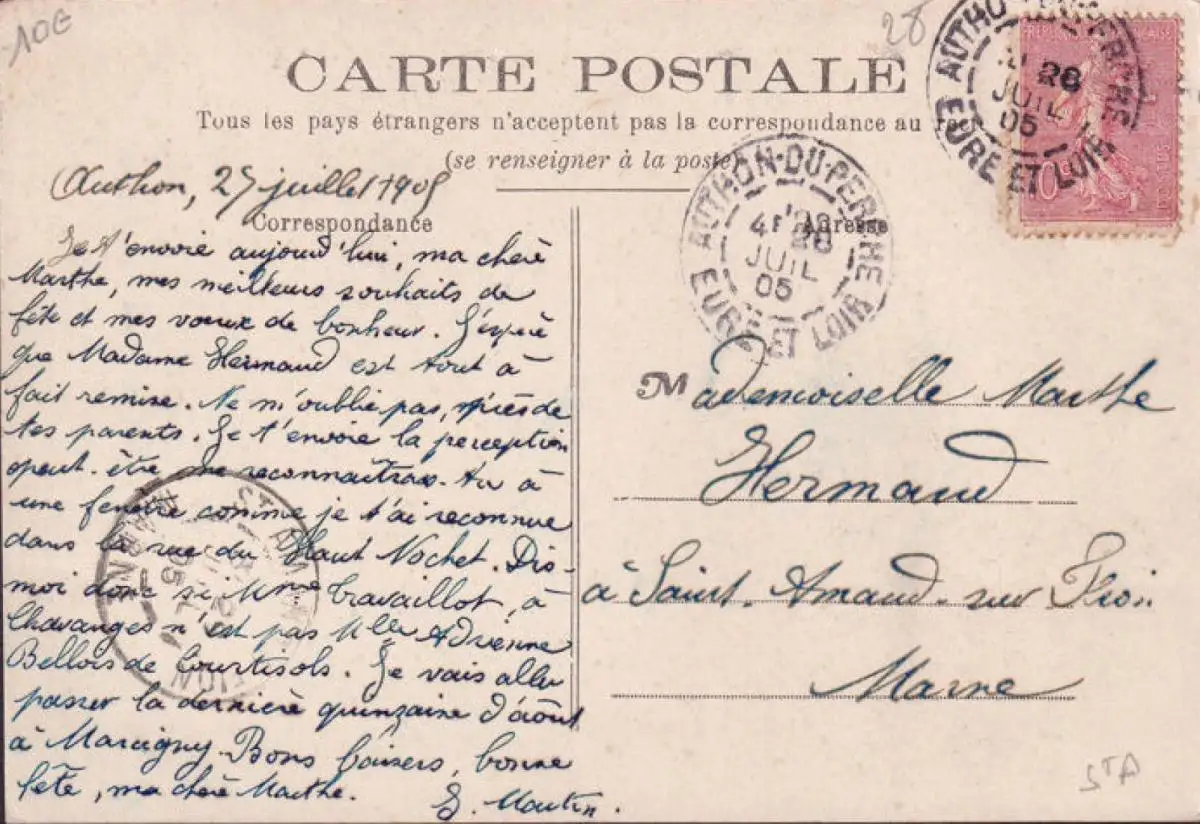 10€
28
CARTE POSTALE
Tous les pays étrangers n'acceptent pas la correspondance au
(se renseigner à la poste)
RÉPUBLIQUE FRANÇAISE
10
AUTHON-DU-PERCHE
28
JUIL
05
EURE ET LOIR
AUTHON-DU-PERCHE
4E 28
JUIL
05
EURE ET LOIR
Authon, 27 juillet 1905
Correspondance
Adresse
Je t'envoie aujourd'hui, ma chère
Marthe, mes meilleurs souhaits de
fête et mes vœux de bonheur. J'espère
que Madame Hermand est tout à
fait remise. Ne m'oublie pas, près de
tes parents. Je t'envoie la perception
peut-être me reconnaîtras-tu à
une fenêtre comme je t'ai reconnue
dans la rue du Haut Nochet. Dis-
moi donc si Mme Travaillot, à
Chavanges n'est pas Mlle Adrienne
Bellois de Courtisols. Je vais aller
passer la dernière quinzaine d'août
à Marcigny. Bons baisers, bonne
fête, ma chère Marthe.
Martin.
Mademoiselle Marthe
Hermand
à Saint-Amand-sur Fion
Marne
05
MARNE
StA